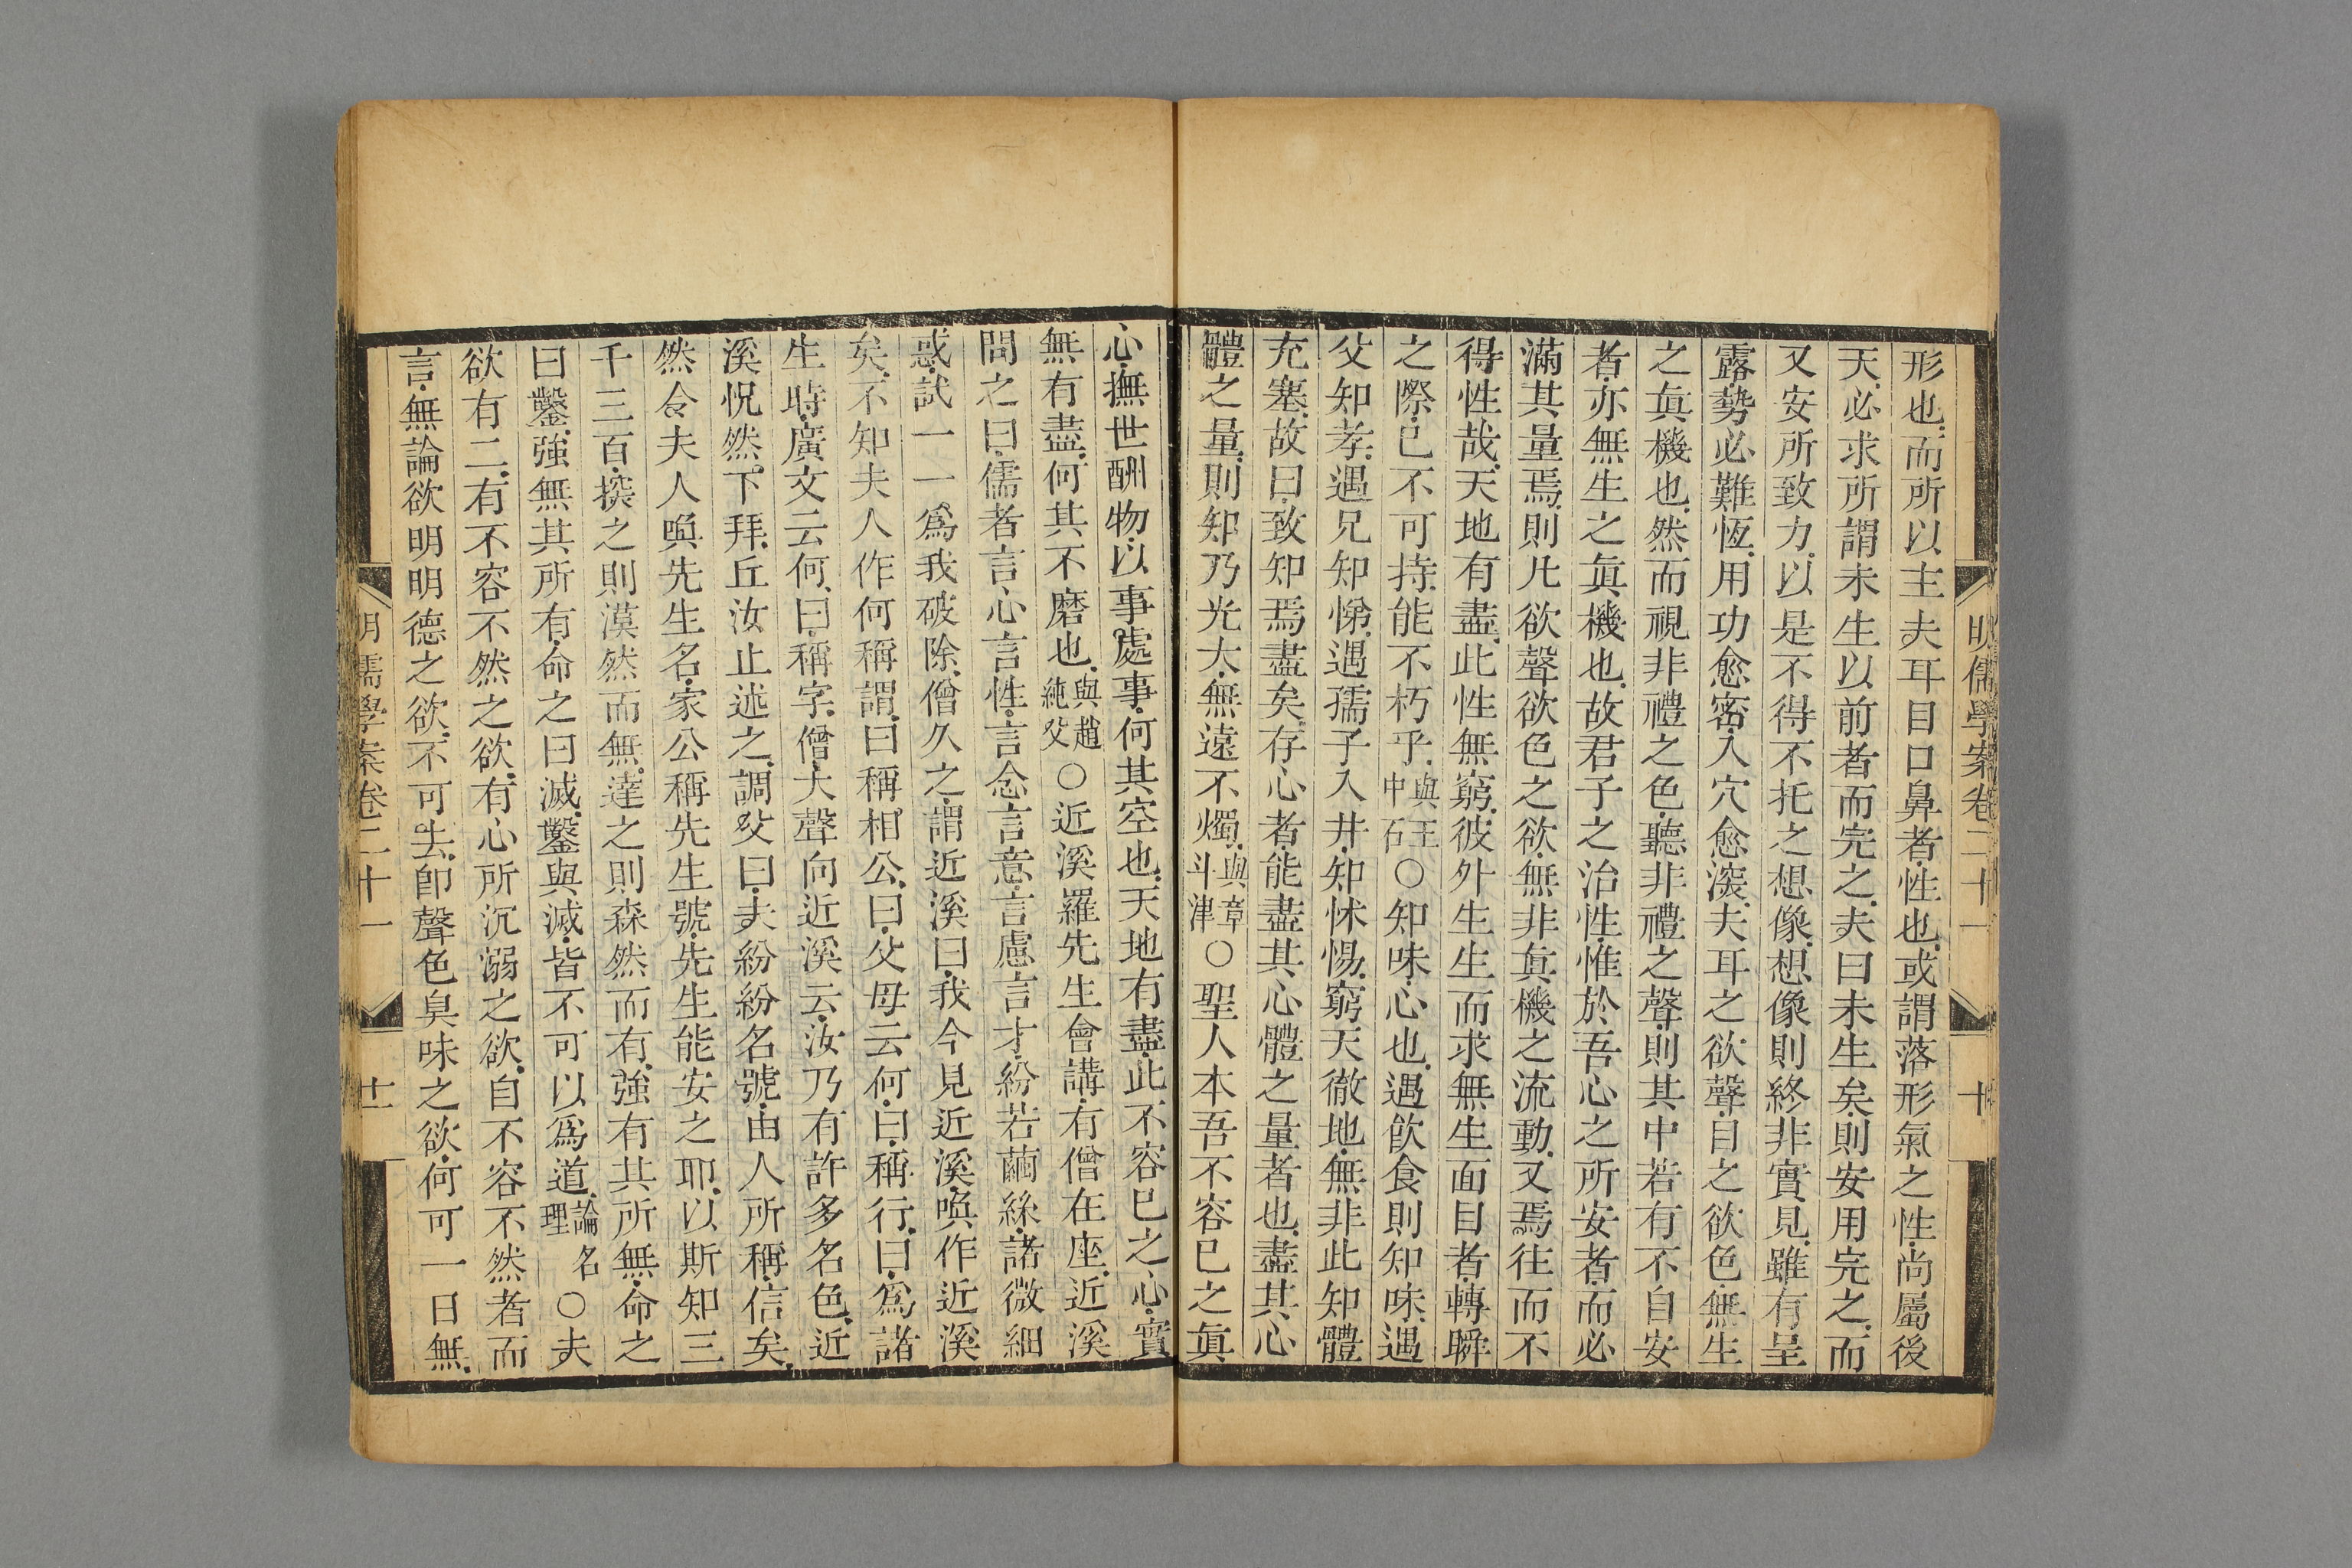 明儒學案卷二十一 十
形也而所以主夫耳目口鼻者性也或謂落形氣之性尚屬後
天必求所謂未生以前者而完之夫曰未生矣則安用完之而
又安所致力以是不得不托之想像想像則終非實見雖有呈
露勢必難恆用功愈密入穴愈深夫耳之欲聲目之欲色無生
之眞機也然而視非禮之色聽非禮之聲則其中若有不自安
者亦無生之眞機也故君子之治性惟於吾心之所安者而必
滿其量焉則凡欲聲欲色之欲無非眞機之流動又焉往而不
得性哉天地有盡此性無窮彼外生生而求無生面目者轉瞬
之際已不可持能不朽乎與王中石〇知味心也遇飮食則知味遇
父知孝遇兄知悌遇孺子入井知怵惕窮天徹地無非此知體
充塞故曰致知焉盡矣存心者能盡其心體之量者也盡其心
體之量則知乃光大無遠不燭與章斗津〇聖人本吾不容已之眞
心撫世酬物以事處事何其空也天地有盡此不容已之心實
無有盡何其不磨也與趙純父〇近溪羅先生會講有僧在座近溪
問之曰儒者言心言性言念言意言慮言才紛若繭絲諸微細
惑試一一爲我破除僧久之謂近溪曰我今見近溪喚作近溪
矣不知夫人作何稱謂曰稱相公曰父母云何曰稱行曰爲諸
生時廣文云何曰稱字僧大聲向近溪云汝乃有許多名色近
溪怳然下拜丘汝止述之調父曰夫紛紛名號由人所稱信矣
然令夫人喚先生名家公稱先生號先生能安之耶以斯知三
千三百探之則漠然而無達之則森然而有強有其所無命之
曰鑿強無其所有命之曰滅鑿與滅皆不可以爲道論名理〇夫
欲有二有不容不然之欲有心所沉溺之欲自不容不然者而
言無論欲明明德之欲不可去卽聲色臭味之欲何可一日無
明儒學案卷二十一 十一